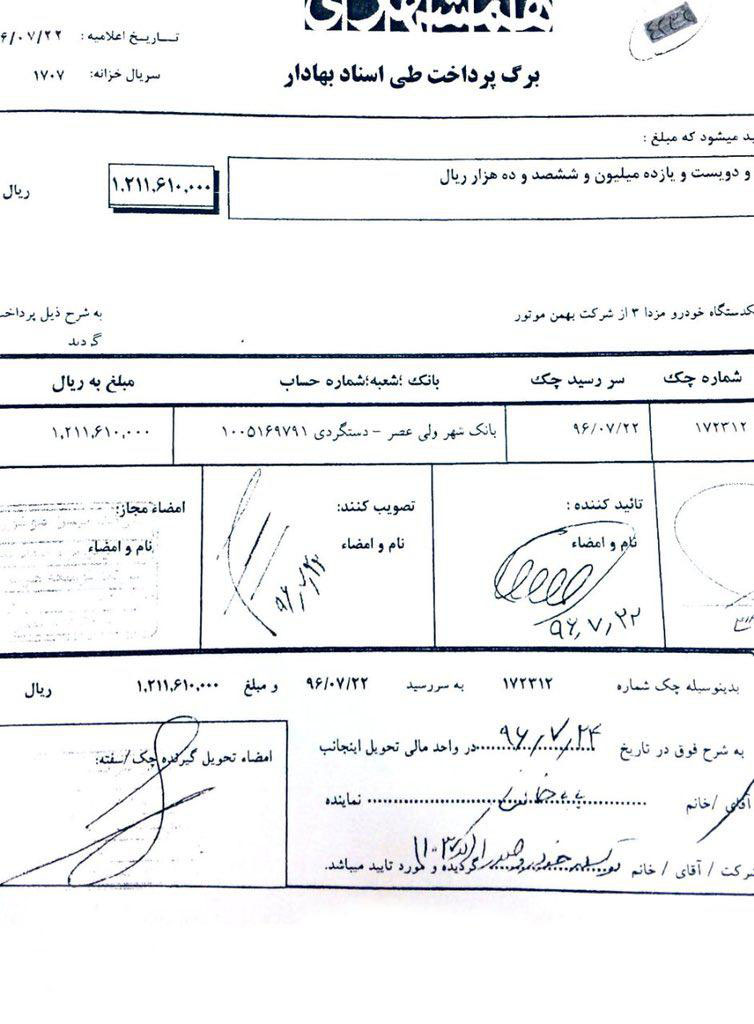 همشهری
تـــاریـخ اعلامیه : ۶/۰۷/۲۲
سریال خزانه: ۱۷۰۷
برگ پرداخت طی اسناد بهادار
ید میشود که مبلغ :
و دویست و یازده میلیون و ششصد و ده هزار ریال
۱.۲۱۱,۶۱۰,۰۰۰
ریال
کدستگاه خودرو مزدا ۳ از شرکت بهمن موتور
به شرح ذیل پرداخت
گردید
شماره چک
سر رسید چک
بانک ؛شعبه؛شماره حساب
مبلغ به ریال
۱۷۲۳۱۲
۹۶/۰۷/۲۲
بانک شهر ولی عصر - دستگردی ۱۰۰۵۱۶۹۷۹۱
۱,۲۱۱,۶۱۰,۰۰۰
تائید کننده :
نام و امضاء
۹۶,۷,۲۲
تصویب کنند:
نام و امضاء
امضاء مجاز:
نام و امضاء
بدینوسیله چک شماره ۱۷۲۳۱۲ به سررسید ۹۶/۰۷/۲۲ و مبلغ ۱.۲۱۱,۶۱۰,۰۰۰ ریال
به شرح فوق در تاریخ ۹۶,۷,۲۴ در واحد مالی تحویل اینجانب
آقای /خانم نماینده
شرکت / آقای / خانم گردیده و مورد تایید میباشد.
امضاء تحویل گیرنده چک /سفته: